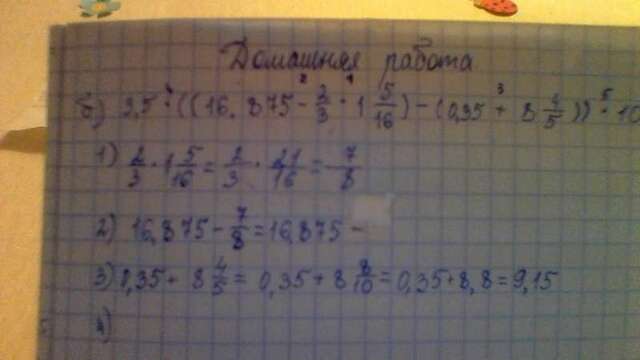 Домашняя работа
б) 2,5 · ((16,875 - 2/3 · 1 5/16) - (0,35 + 8 4/5)) · 10
1) 2/3 · 1 5/16 = 2/3 · 21/16 = 7/8
2) 16,875 - 7/8 = 16,875 -
3) 0,35 + 8 4/5 = 0,35 + 8 8/10 = 0,35 + 8,8 = 9,15
4)